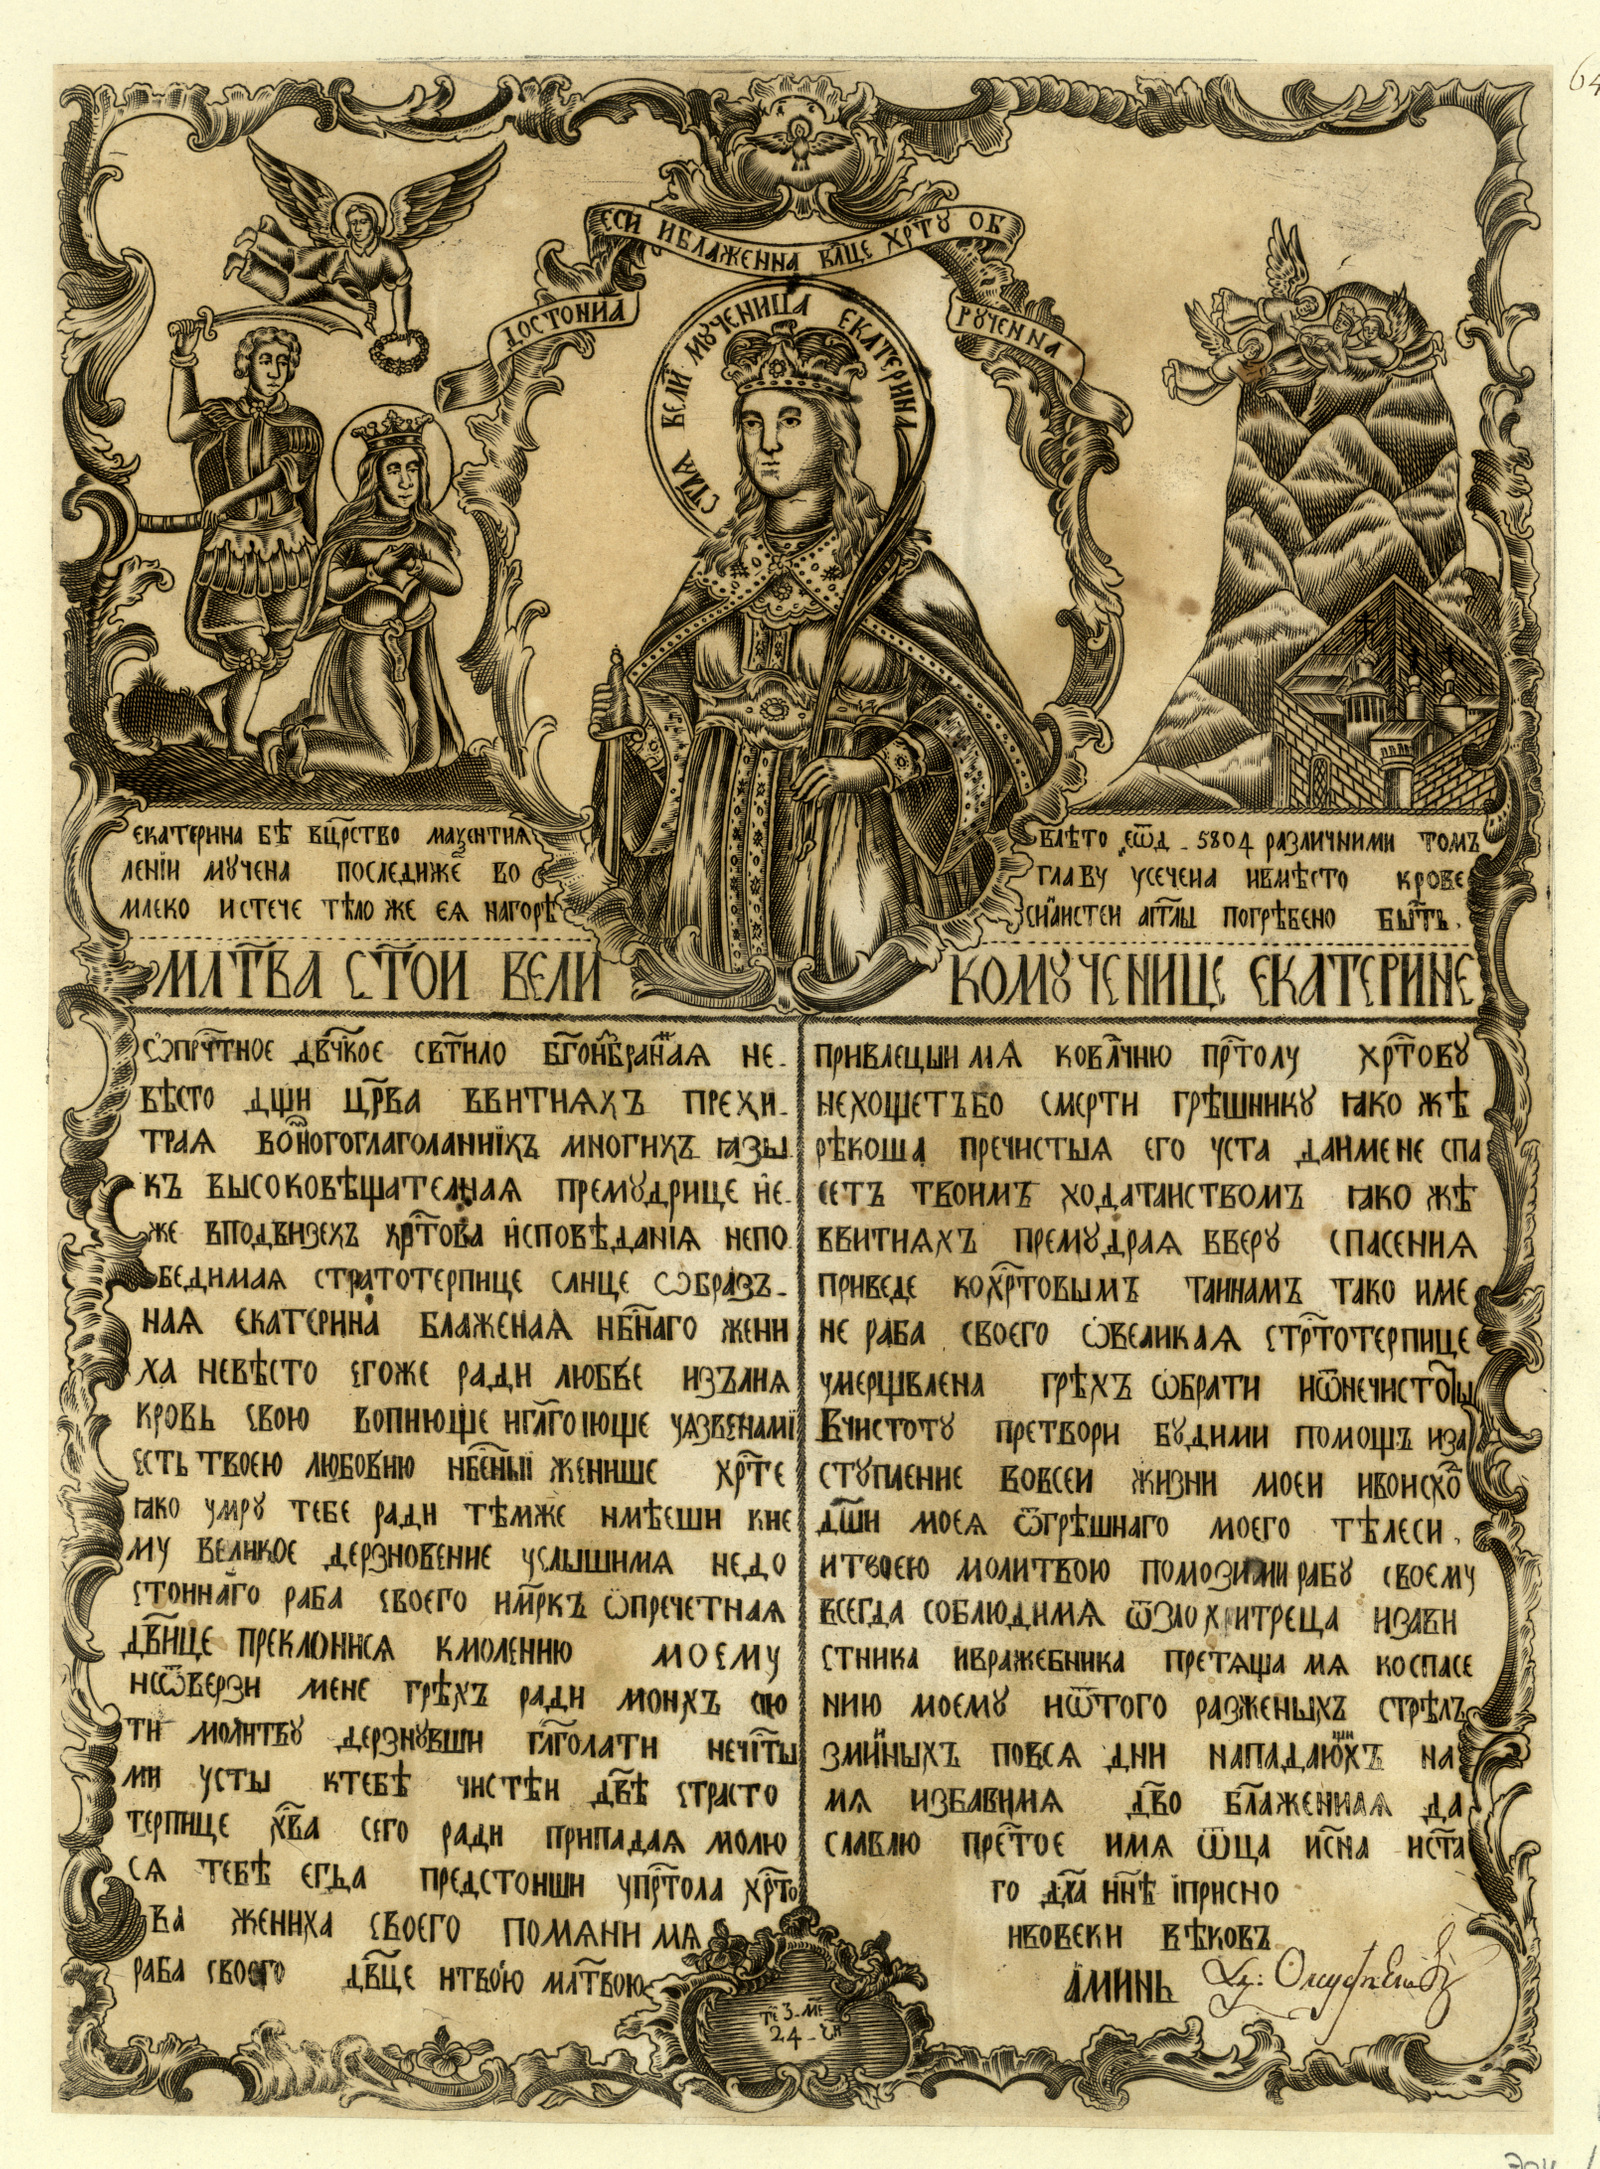 64
ДОСТОИНА ЕСИ ИБЛАЖЕННА ВАЩЕ ХРТУ ОБРУЧЕННА
СТАА ВЕЛИ МУЧЕНИЦА ЕКАТЕРИНА
ЕКАТЕРИНА БѢ ВЦРСТВО МАѮЕНТИА
ЛЕНІИ МУЧЕНА ПОСЛЕДИЖЕ ВО
МЛЕКО ИСТЕЧЕ ТѢЛО ЖЕ ЕѦ НАГОРѢ
ВЛѢТО Ѿ 5804 РАЗЛИЧНИМИ ТОМЪ
ГЛАВУ УСЕЧЕНА ИВМѢСТО КРОВЕ
СИНАИСТЕИ АГГЛЫ ПОГРѢБЕНО БЫТЬ.
МЛТВА СТОИ ВЕЛИКОМУЧЕНИЦЕ ЕКАТЕРИНЕ
ѾПРЧТНОЕ ДВЧКОЕ СВТИЛО БГОИЗБРАННАЯ НЕ-
ВѢСТО ДЩИ ЦРВА ВВИТИЯХЪ ПРЕХИ-
ТРАЯ ВОИНОГОГЛАГОЛАНИІХЪ МНОГИХЪ ІАЗЫ
КЪ ВЫСОКОВѢЩАТЕЛНАЯ ПРЕМУДРИЦЕ НЕ-
ЖЕ ВПОДВИЗЕХЪ ХРТОВА ИСПОВѢДАНІЯ НЕПО
БЕДИМАЯ СТРАТОТЕРПИЦЕ СЛНЦЕ ѠБРАЗЪ-
НАЯ ЕКАТЕРИНА БЛАЖЕНАЯ НБНАГО ЖЕНИ
ХА НЕВѢСТО ЕГОЖЕ РАДИ ЛЮБВЕ ИЗЪЛИЯ
КРОВЬ СВОЮ ВОПИЮЩЕ ИГЛГОЛЮЩЕ УѦЗВЕНАМИ
ЕСТЬ ТВОЕЮ ЛЮБОВИЮ НБЕНЫЇ ЖЕНИШЕ ХРТЕ
ІАКО УМРУ ТЕБЕ РАДИ ТѢМЖЕ ИМѢЕШИ КНЕ
МУ ВЕЛИКОЕ ДЕРЗНОВЕНИЕ УСЛЫШИМЯ НЕДО
СТОИНАГО РАБА СВОЕГО ИМРКЪ ѾПРЕЧЕТНАЯ
ДВИЦЕ ПРЕКЛОНИСЯ КМОЛЕНИЮ МОЕМУ
НЕѾВЕРЗИ МЕНЕ ГРѢХЪ РАДИ МОИХЪ СИО
ТИ МОЛИТВУ ДЕРЗНУВШИ ГЛГОЛАТИ НЕЧІТЫ
МИ УСТЫ КТЕБѢ ЧИСТѢИ ДВѢ СТРАСТО
ТЕРПИЦЕ ХВА СЕГО РАДИ ПРИПАДАЯ МОЛЮ
СЯ ТЕБѢ ЕГДА ПРЕДСТОИШИ УПРТОЛА ХРТО
ВА ЖЕНИХА СВОЕГО ПОМЯНИ МЯ
РАБА СВОЕГО ДВЦЕ ИТВОЮ МЛТВОЮ
ПРИВЛЕЦЫИ МЯ КОВЛЧНЮ ПРТОЛУ ХРТОВУ
НЕХОЩЕТЪ БО СМЕРТИ ГРѢШНИКУ ІАКО ЖѢ
РѢКОША ПРЕЧИСТЫЯ ЕГО УСТА ДАИМЕНЕ СПА
СЕТЪ ТВОИМЪ ХОДАТАИСТВОМЪ ІАКО ЖѢ
ВВИТИЯХЪ ПРЕМУДРАЯ ВВЕРУ СПАСЕНИЯ
ПРИВЕДЕ КОХРТОВЫМЪ ТАИНАМЪ ТАКО ИМЕ
НЕ РАБА СВОЕГО ѠВЕЛИКАЯ СТРТОТЕРПИЦЕ
УМЕРЩВЛЕНА ГРѢХЪ ѠБРАТИ ИѾНЕЧИСТОТЫ
ВЧИСТОТУ ПРЕТВОРИ БУДИМИ ПОМОЩЪ ИЗА
СТУПЛЕНИЕ ВОВСЕИ ЖИЗНИ МОЕИ ИВОИСХО
ДШИ МОЕЯ ѾГРѢШНАГО МОЕГО ТѢЛЕСИ.
ИТВОЕЮ МОЛИТВОЮ ПОМОЗИМИ РАБУ СВОЕМУ
ВСЕГДА СОБЛЮДИМЯ ѾЗЛО ХИТРЕЦА ИЗАВИ
СТНИКА ИВРАЖЕБНИКА ПРЕТЯЩА МЯ КОСПАСЕ
НИЮ МОЕМУ ИѾТОГО РАЗЖЕНЫХЪ СТРѢЛЪ
ЗМИИНЫХЪ ПОВСЯ ДНИ НАПАДАЮЩИХЪ НА
МЯ ИЗБАВИМЯ ДВО БЛАЖЕННАЯ ДА
СЛАВЛЮ ПРЕТОЕ ИМЯ ѾЦА ИСНА ИСТА
ГО ДХА ННѢ ІПРИСНО
ИВОВЕКИ ВѢКОВЪ
АМИНЬ
24